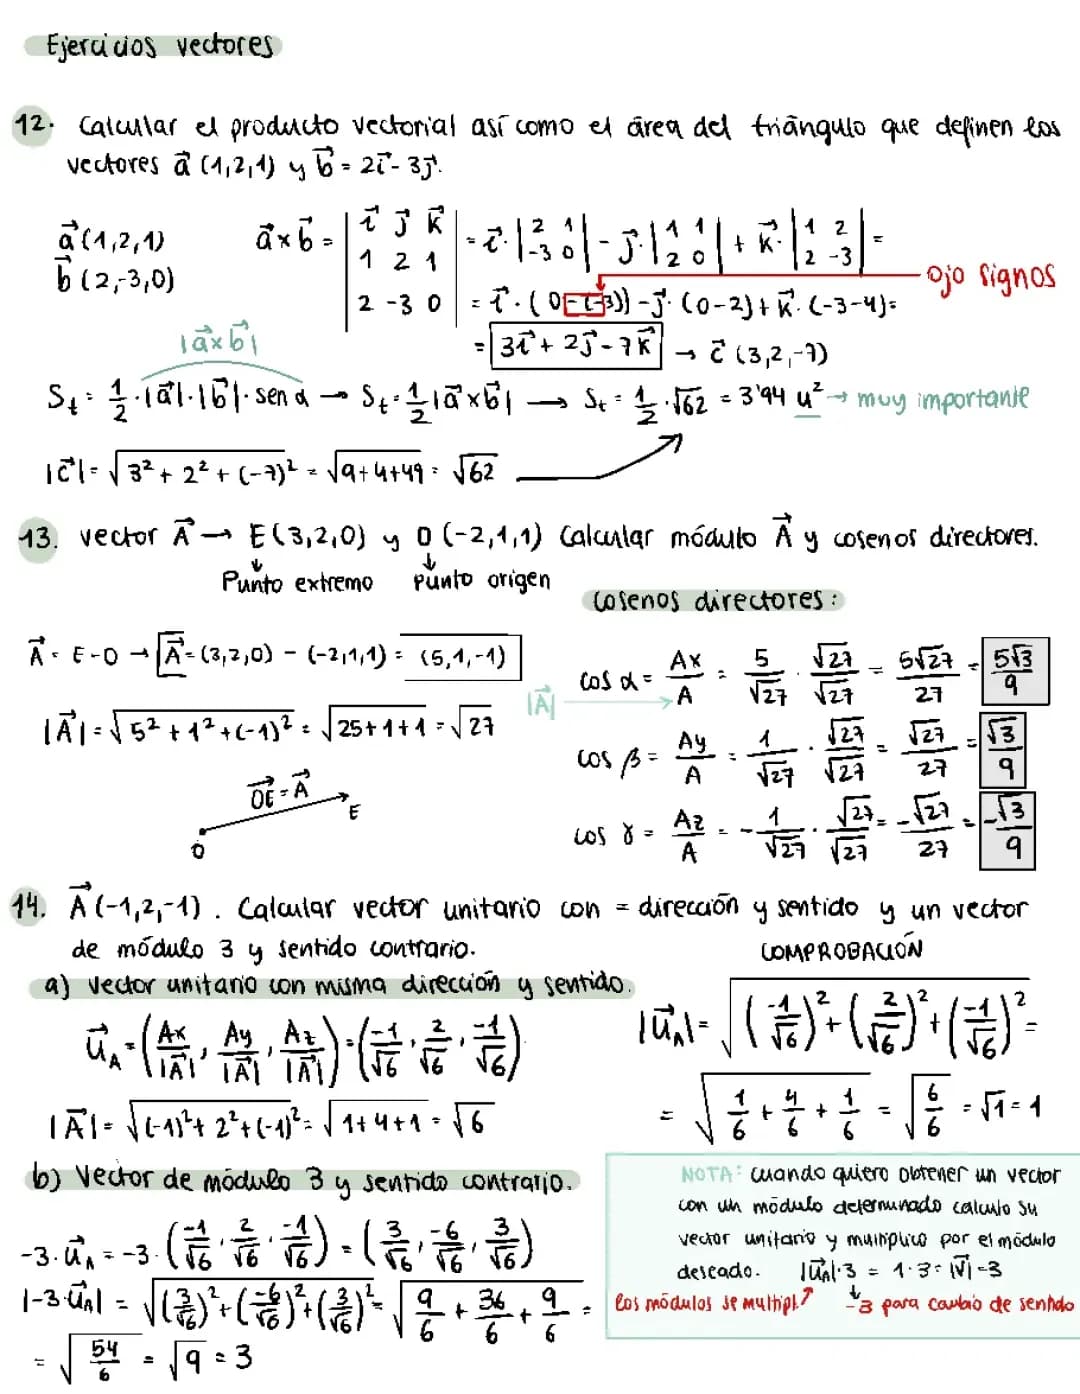 Ejercicios vectores
12. Calcular el producto vectorial así como el área del triángulo que definen los
vectores a⃗ (1,2,1) y b⃗ = 2i⃗ - 3j⃗.
a⃗ (1,2,1)
b⃗ (2,-3,0)
a⃗ x b⃗ = | i⃗ j⃗ k⃗ | 1 2 1 | 2 -3 0 | = i⃗ · | 2 1 | -3 0 | - j⃗ · | 1 1 | 2 0 | + k⃗ · | 1 2 | 2 -3 | =
= i⃗ · (0-(-3)) - j⃗ · (0-2) + k⃗ · (-3-4) =
ojo signos
= 3i⃗ + 2j⃗ - 7k⃗ → c⃗ (3,2,-7)
|a⃗ x b⃗|
St = 1/2 · |a⃗| · |b⃗| · sen α → St = 1/2 |a⃗ x b⃗| → St = 1/2 · √62 = 3'94 u² → muy importante
|c⃗| = √3² + 2² + (-7)² = √9+4+49 = √62
13. vector A⃗ → E(3,2,0) y O(-2,1,1) Calcular módulo A⃗ y cosenos directores.
Punto extremo punto origen
cosenos directores:
A⃗ = E-O → A⃗ = (3,2,0) - (-2,1,1) = (5,1,-1)
|A⃗| = √5² + 1² + (-1)² = √25+1+1 = √27
OE⃗ = A⃗
E
O
|A⃗|
cos α = Ax/A = 5/√27 · √27/√27 = 5√27/27 = 5√3/9
cos β = Ay/A = 1/√27 · √27/√27 = √27/27 = √3/9
cos γ = Az/A = -1/√27 · √27/√27 = -√27/27 = -√3/9
14. A⃗ (-1,2,-1). Calcular vector unitario con = dirección y sentido y un vector
de módulo 3 y sentido contrario.
a) Vector unitario con misma dirección y sentido.
u⃗A = (Ax/|A⃗|, Ay/|A⃗|, Az/|A⃗|) = (-1/√6, 2/√6, -1/√6)
|A⃗| = √(-1)² + 2² + (-1)² = √1+4+1 = √6
COMPROBACIÓN
|u⃗A| = √(-1/√6)² + (2/√6)² + (-1/√6)² =
= √1/6 + 4/6 + 1/6 = √6/6 = √1 = 1
b) Vector de módulo 3 y sentido contrario.
-3 · u⃗A = -3 · (-1/√6, 2/√6, -1/√6) = (3/√6, -6/√6, 3/√6)
|-3·u⃗A| = √(3/√6)² + (-6/√6)² + (3/√6)² = √9/6 + 36/6 + 9/6 =
= √54/6 = √9 = 3
NOTA: cuando quiero obtener un vector
con un módulo determinado calculo su
vector unitario y multiplico por el módulo
deseado. |u⃗A|·3 = 1·3 = |V⃗| = 3
los módulos se multipl. -3 para cambio de sentido